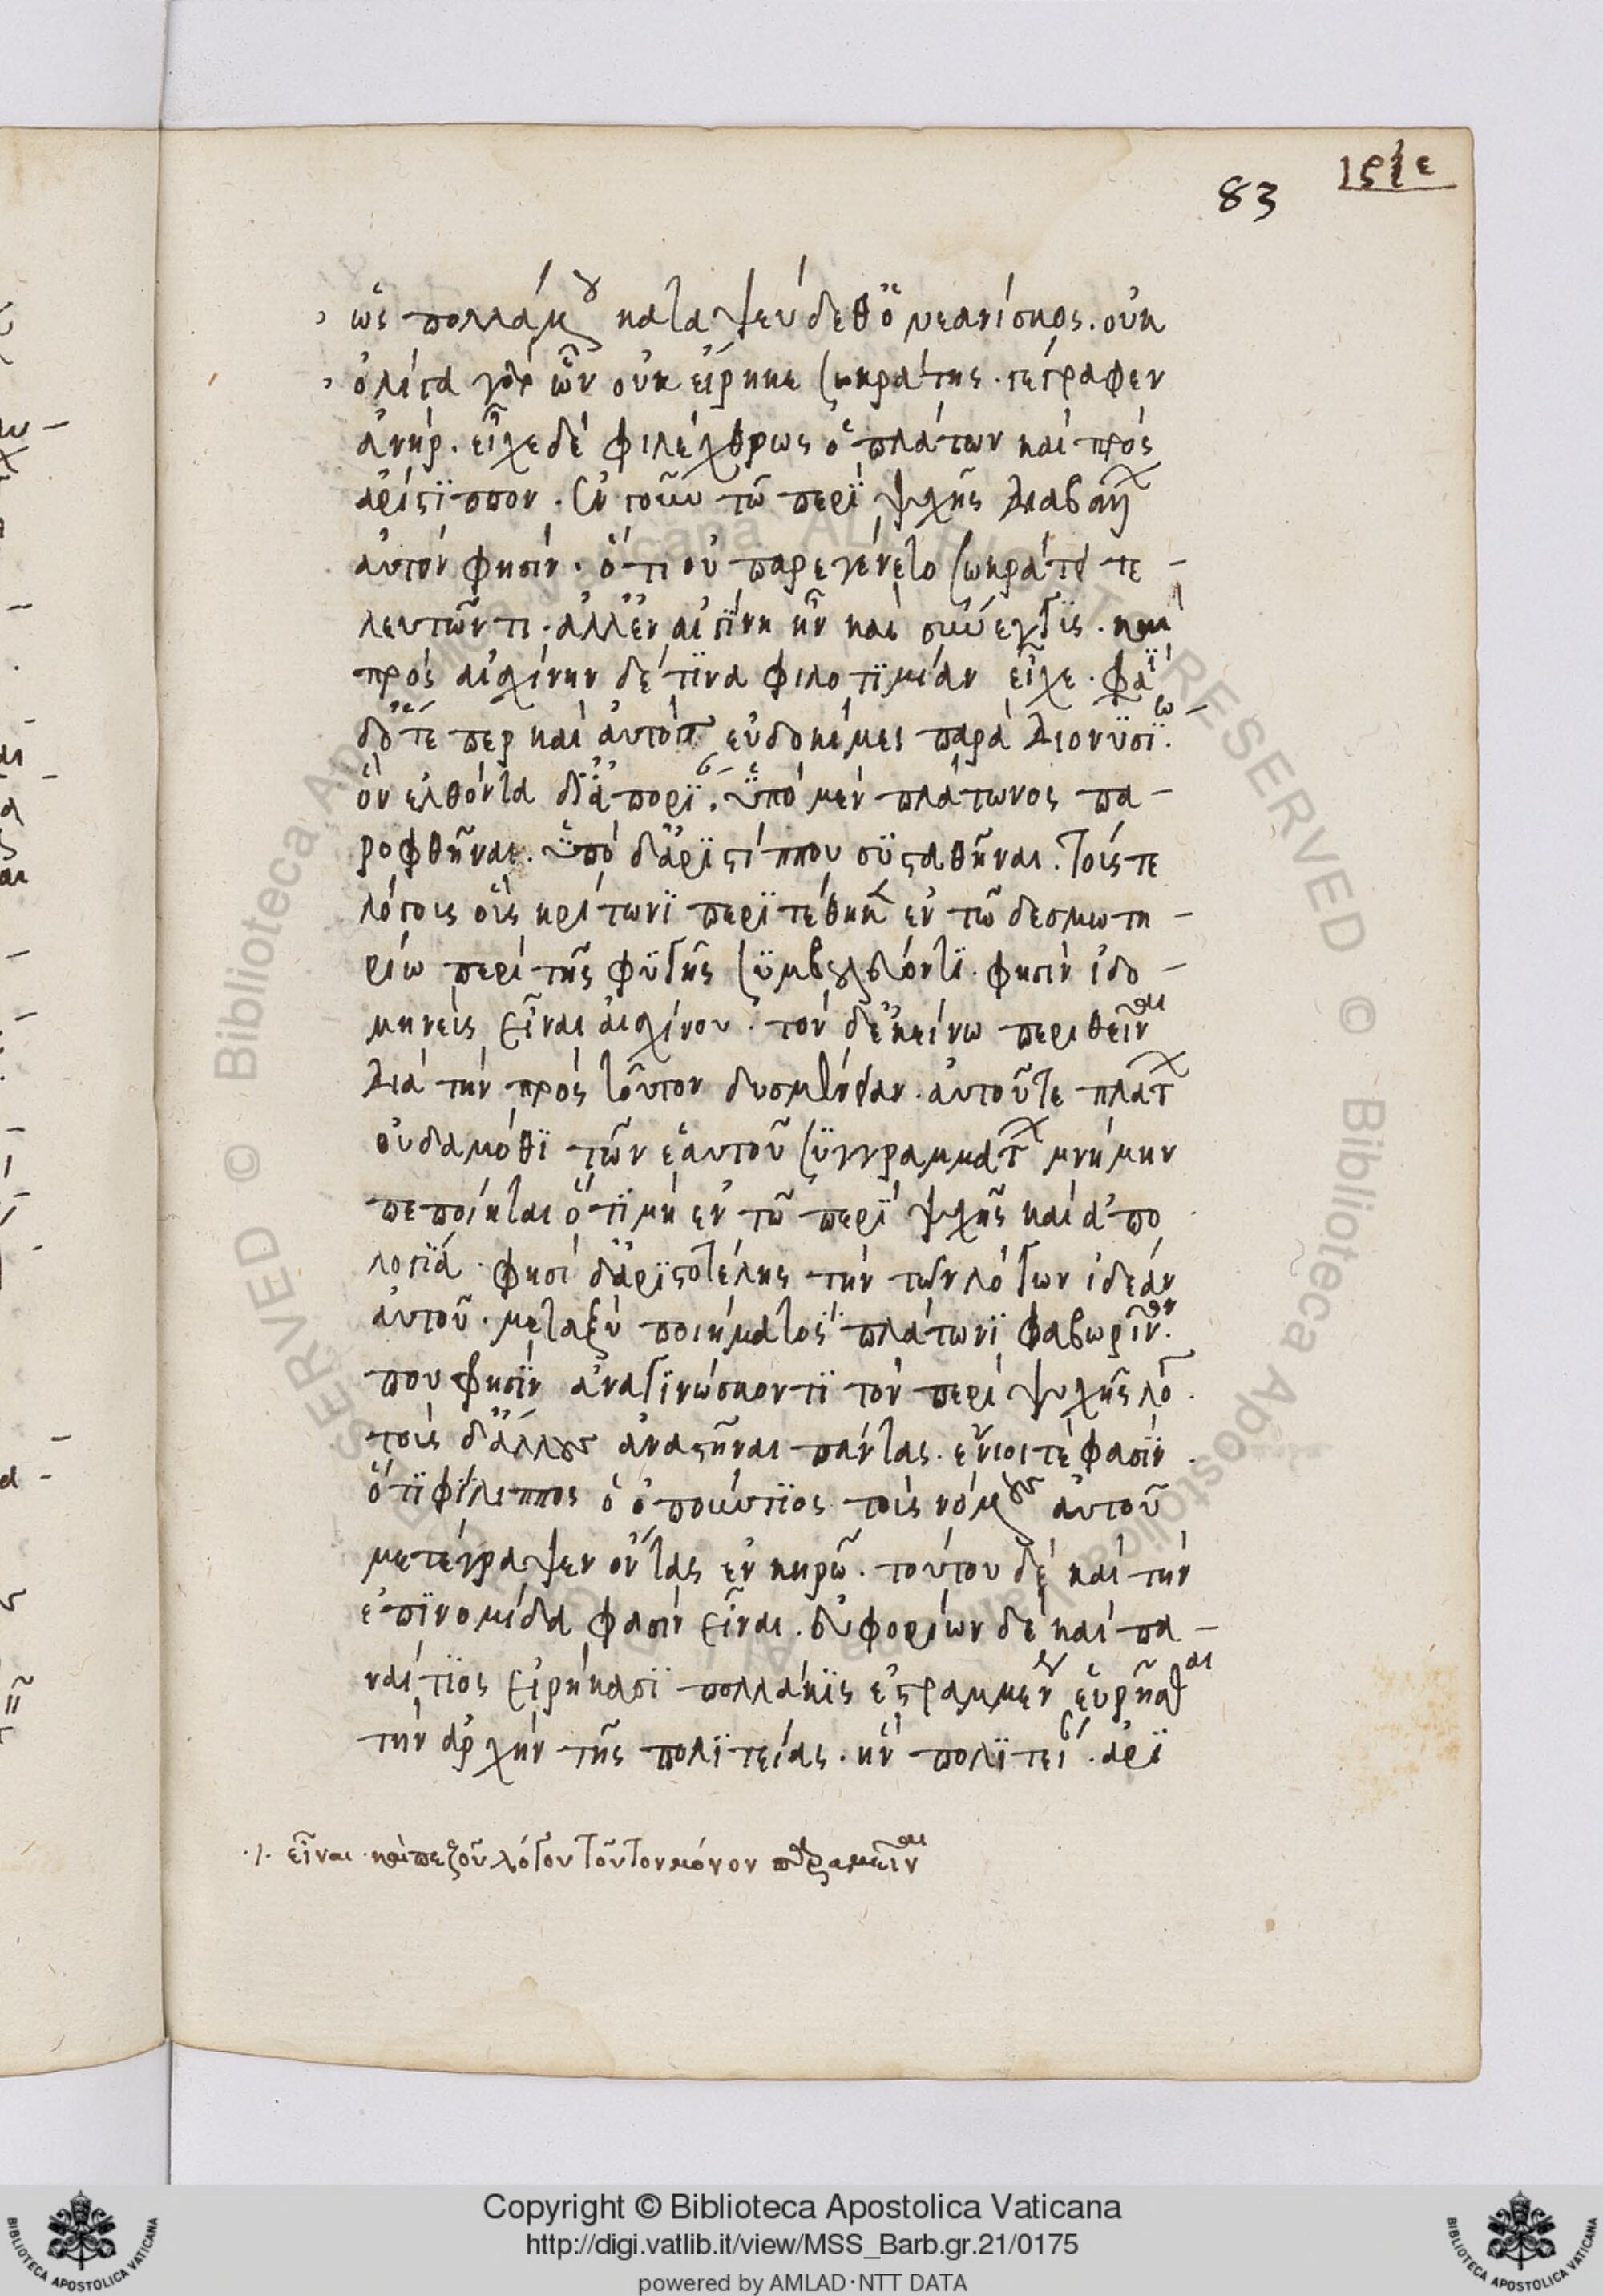 83
ὡς πολλά μου καταψεύδεθ ὁ νεανίσκος. οὐκ
ὀλίγα γὰρ ὧν οὐκ εἴρηκε σωκράτης. γέγραφεν
ἀνήρ. εἶχε δὲ φιλέχθρως ὁ πλάτων καὶ πρὸς
ἀρίστϊππον. ἐν γοῦν τῶ περὶ ψυχῆς διαβάλλων
αὐτόν φησὶν. ὅτι οὐ παρεγένετο σωκράτει τε-
λευτῶντι. ἀλλ' ἐν αἰγίνη ἦν καὶ σύνεγγϋς. καὶ
πρὸς αἰσχίνην δέ τϊνα φιλοτϊμίαν εἶχε. φα
δ' ὅτέ περ καὶ αὐτὸς εὐδοκίμει παρὰ διονϋσίω-
ὃν ἐλθόντα δϊ' ἀπορϊ. ὑπὸ μὲν πλάτωνος πα-
ροφθῆναι. ὑπὸ δ' ἀρϊστίππου σϋσταθῆναι. τούς τε
λόγους οὓς κρίτωνϊ περϊτέθηκεν ἐν τῶ δεσμωτη-
ρίω περὶ τῆς φϋγῆς σϋμβουλεύοντϊ. φησὶν ἰδο-
μηνεὺς εἶναι αἰσχίνου. τὸν δ' ἐκείνω περιθεῖναι
διὰ τὴν πρὸς τοῦτον δυσμένειαν. αὐτοῦ τε πλάτων
οὐδαμόθϊ τῶν ἑαυτοῦ σϋγγραμμάτων μνήμην
πεποίηται ὅτϊ μὴ ἐν τῶ περὶ ψυχῆς καὶ ἀπο
λογϊα. φησὶ δ' ἀρϊστοτέλης τὴν τῶν λόγων ἰδέαν
αὐτοῦ. μεταξὺ ποιήματος πλάτωνϊ φαβωρῖνον.
που φησϊν ἀναγϊνώσκοντϊ τὸν περὶ ψυχῆς λό.
τοὺς δ' ἄλλους ἀναστῆναι πάντας. ἔνιοι τέ φασϊν.
ὅτϊ φίλιππος ὁ ὀπούντϊος τοὺς νόμους αὐτοῦ
μετέγραψεν ὄντας ἐν κηρῶ. τούτου δὲ καὶ τὴν
ἐπϊνομίδα φασὶν εἶναι. εὐφορίων δὲ καὶ πα-
ναίτϊος εἰρήκασϊ πολλάκϊς ἐστραμμένην εὑρῆσθαι
τὴν ἀρχὴν τῆς πολϊτείας. ἣν πολϊτεί. ἀρϊ
εἶναι καὶ πεζοῦ λόγου τοῦτον μόνον παραμεῖναι
Copyright © Biblioteca Apostolica Vaticana
http://digi.vatlib.it/view/MSS_Barb.gr.21/0175
powered by AMLAD·NTT DATA